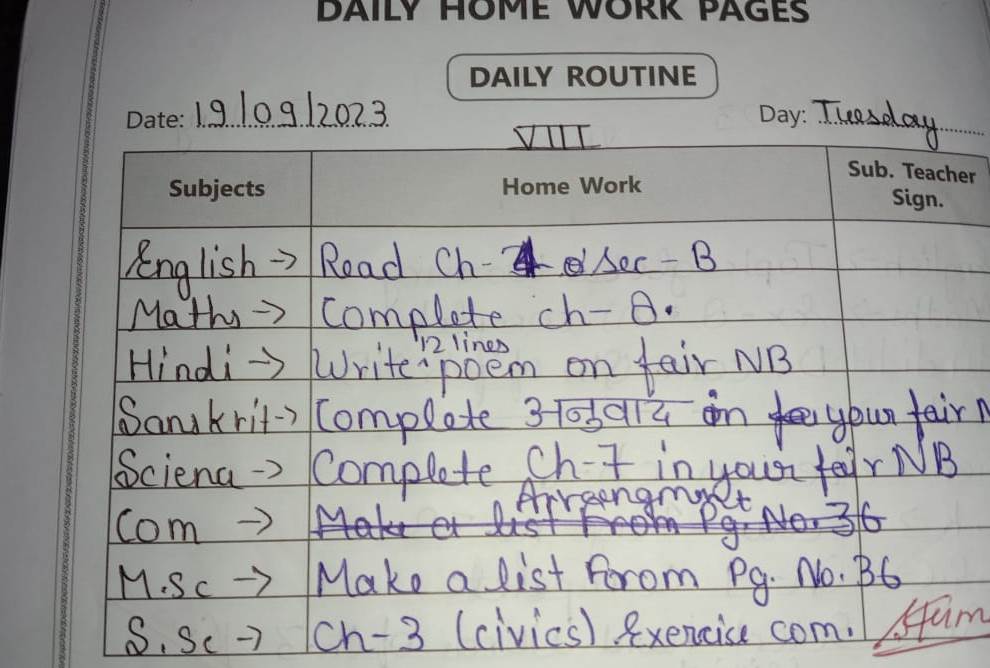 DAILY HOME WORK PAGES
DAILY ROUTINE
Date: 19/09/2023 Day: Tuesday
VIII
Subjects Home Work Sub. Teacher Sign.
English → Read Ch- 4 Sec - B
Maths → Complete ch - 8.
Hindi → Write 12 lines poem on fair NB
Sanskrit → Complete अनुवाद in your fair N
Scienc → Complete Ch-7 in your fair NB
Com → Arrangment
Make a list from Pg. No. 36
M.sc → Make a list from Pg. No. 36
S.Sc → Ch-3 (civics) Exercise com.